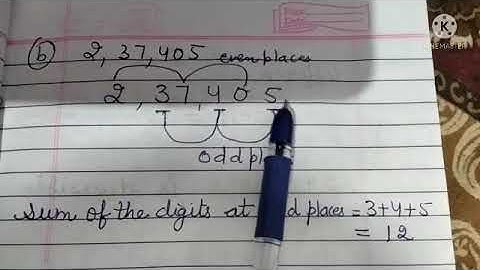 (b) 2,37,405 even places
2,37,405
odd pl
Sum of the digits at d places = 3+4+5
= 12
KINEMASTER